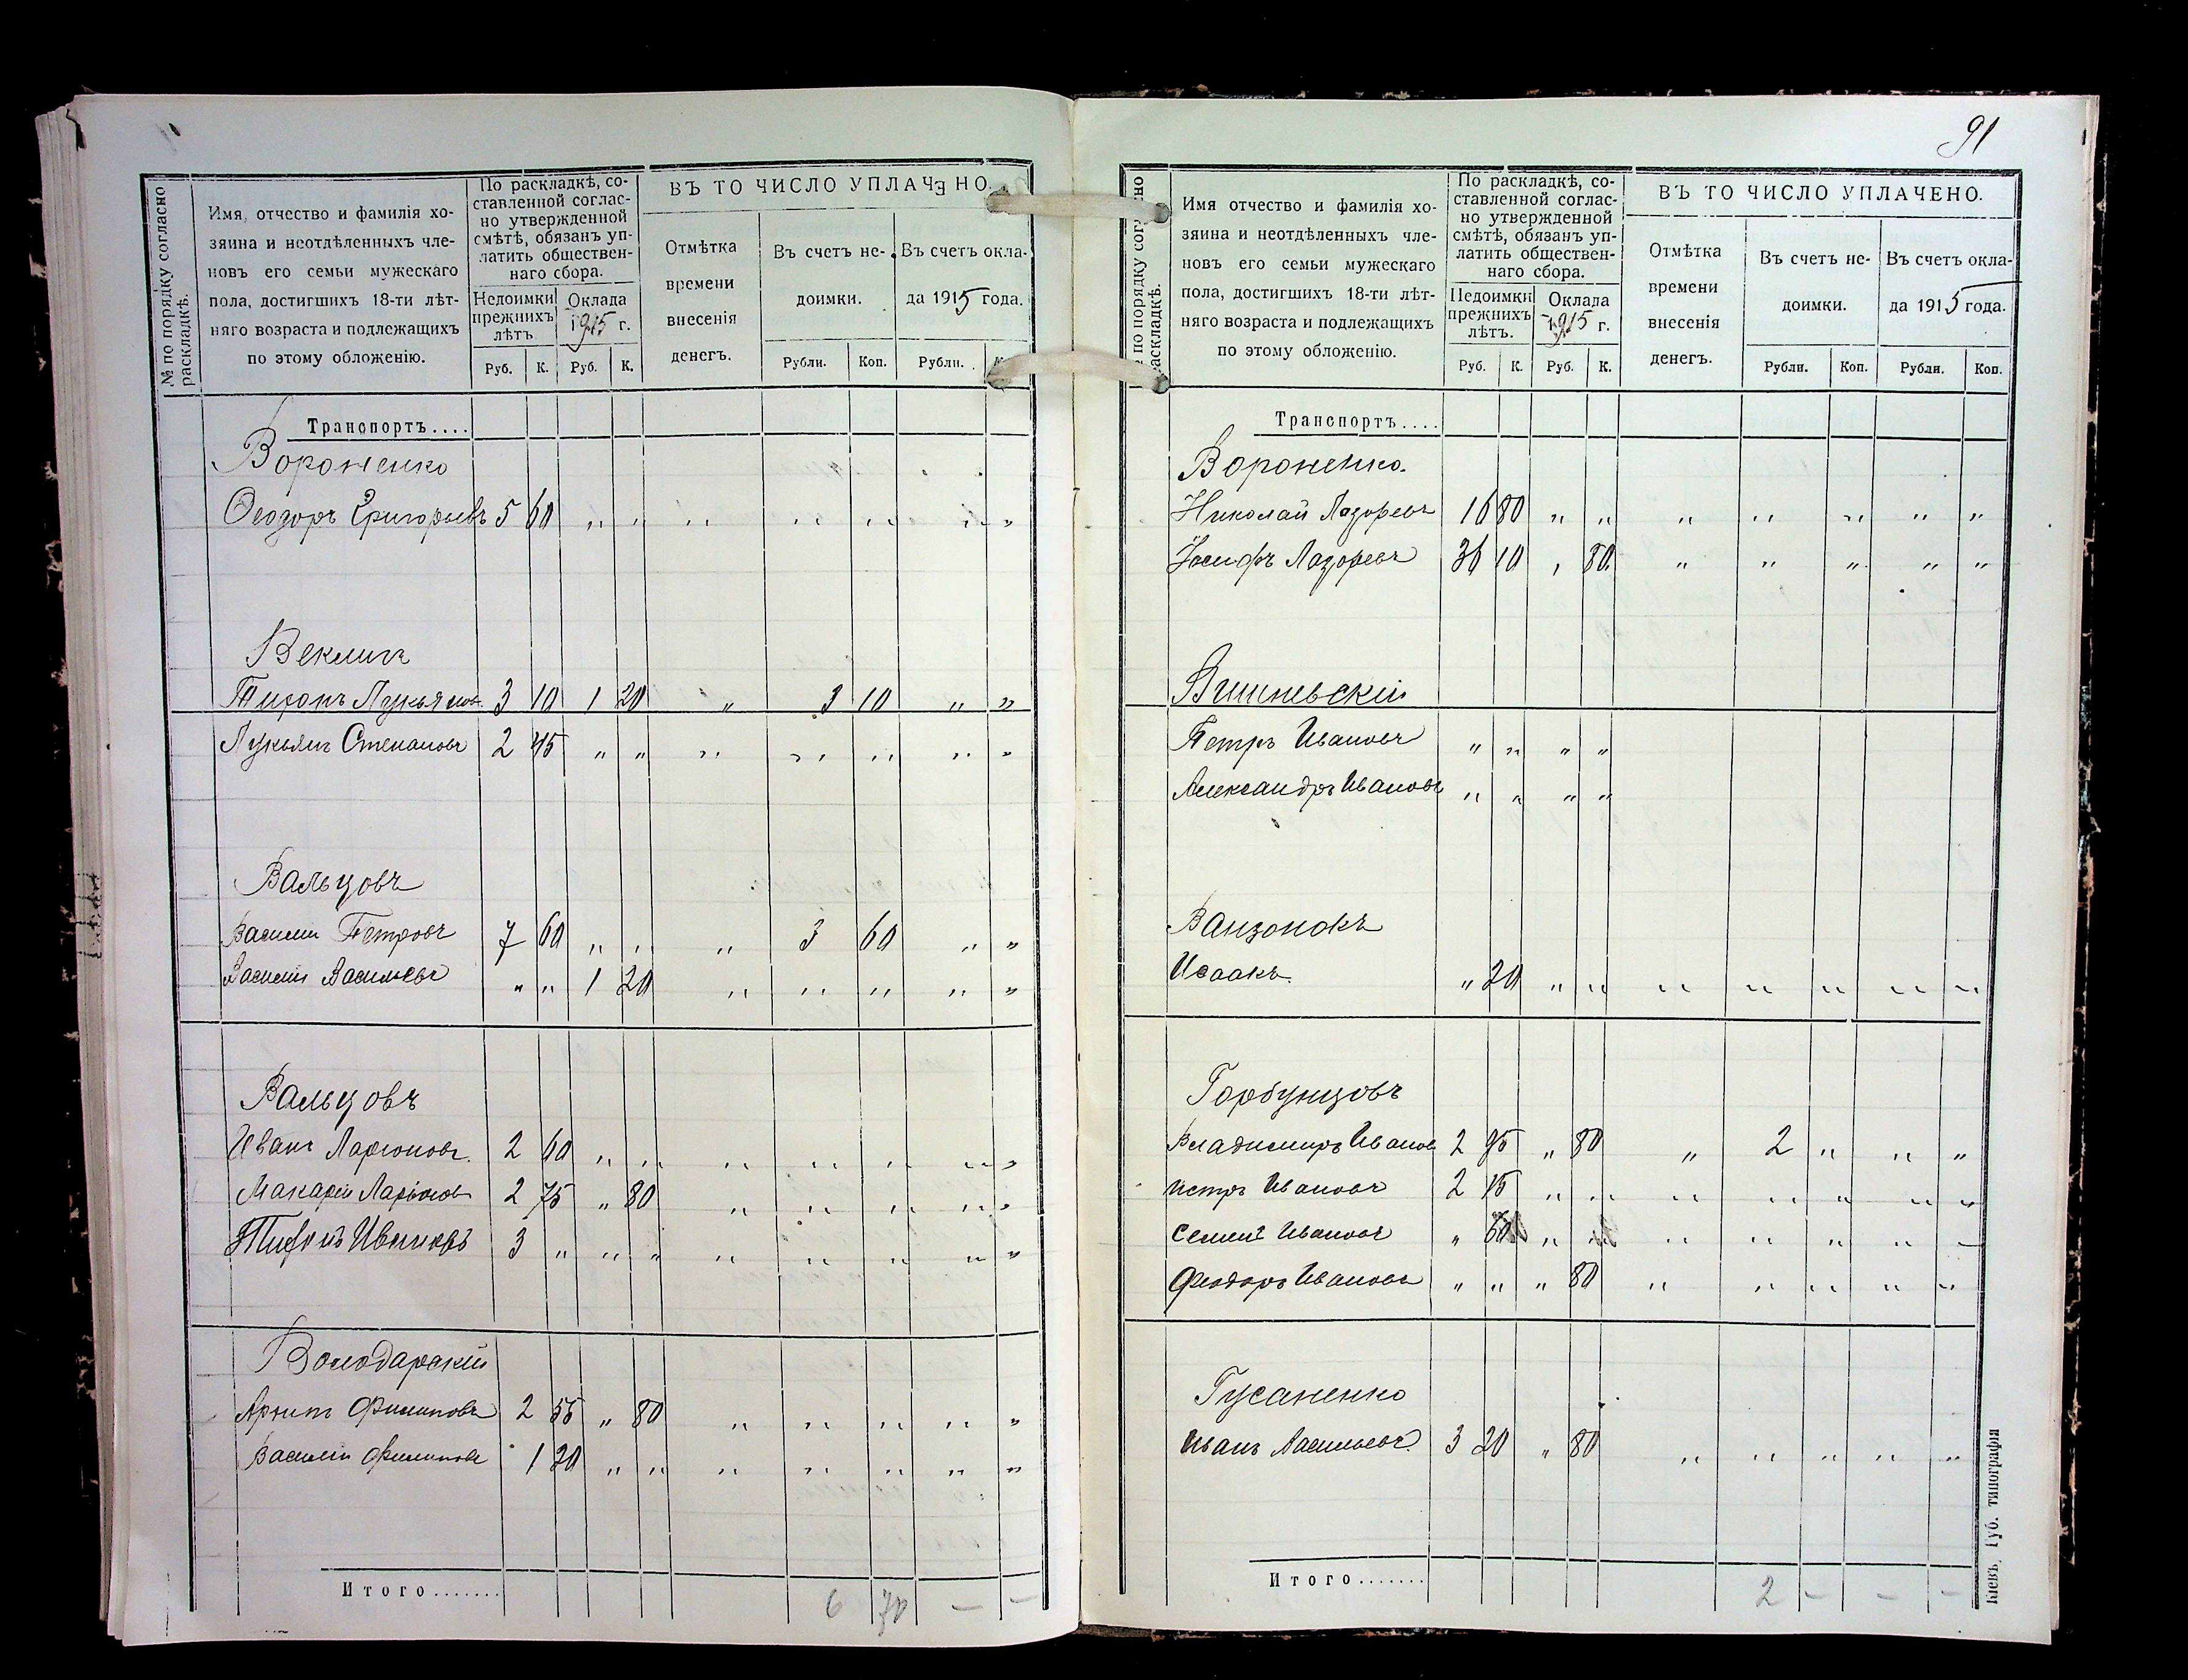 № по порядку согласно
раскладкѣ.
Имя, отчество и фамилія хо-
зяина и неотдѣленныхъ чле-
новъ его семьи мужескаго
пола, достигшихъ 18-ти лѣт-
няго возраста и подлежащихъ
по этому обложенію.
По раскладкѣ, со-
ставленной соглас-
но утвержденной
смѣтѣ, обязанъ уп-
латить обществен-
наго сбора.
Недоимки
прежнихъ
лѣтъ.
Оклада
1915 г.
Руб. К. Руб. К.
ВЪ ТО ЧИСЛО УПЛАЧЕНО.
Отмѣтка
времени
внесенія
денегъ.
Въ счетъ не-
доимки.
Въ счетъ окла-
да 1915 года.
Рубли. Коп. Рубли. К
Транспортъ....
Вороненко
Ѳеодоръ Григорьевъ 5 60 " " " " " " "
Веклич
Тихонъ Лукьянов 3 10 1 20 " 3 10 " "
Лукьянъ Степановъ 2 45 " " " " " " "
Вальцовъ
Василій Петровъ 7 60 " " " 3 60 " "
Василій Васильевъ " " 1 20 " " " " "
Вальцовъ
Иванъ Ларіоновъ 2 60 " " " " " " "
Макарій Ларіонов 2 75 " 80 " " " " "
Ивановъ 3 " " " " " " " "
Володарскій
Архипъ Филиповъ 2 55 " 80 " " " " "
Василій Филипов 1 20 " " " " " " "
Итого....... 6 70 — —
91
№ по порядку согласно
раскладкѣ.
Имя отчество и фамилія хо-
зяина и неотдѣленныхъ чле-
новъ его семьи мужескаго
пола, достигшихъ 18-ти лѣт-
няго возраста и подлежащихъ
по этому обложенію.
По раскладкѣ, со-
ставленной соглас-
но утвержденной
смѣтѣ, обязанъ уп-
латить обществен-
наго сбора.
Недоимки
прежнихъ
лѣтъ.
Оклада
1915 г.
Руб. К. Руб. К.
ВЪ ТО ЧИСЛО УПЛАЧЕНО.
Отмѣтка
времени
внесенія
денегъ.
Въ счетъ не-
доимки.
Въ счетъ окла-
да 1915 года.
Рубли. Коп. Рубли. Коп.
Транспортъ....
Вороненко.
Николай Лазоревъ 16 80 " " " " " " "
Іосифъ Лазоревъ 36 10 " 80 " " " " "
Вишневскій
Петръ Ивановъ " " " "
Александръ Ивановъ " " " "
Ванзонокъ
Исаакъ. " 20 " " " " " " "
Горбунцовъ
Владимиръ Иванов 2 95 " 80 " 2 " " "
Петръ Ивановъ 2 15 " " " " " " "
Семенъ Ивановъ " 60 " " " " " " "
Феодоръ Ивановъ " " " 80 " " " " "
Гусаненко
Иванъ Васильевъ 3 20 " 80 " " " " "
Итого....... 2 — — —
Кіевъ, Губ. типографія